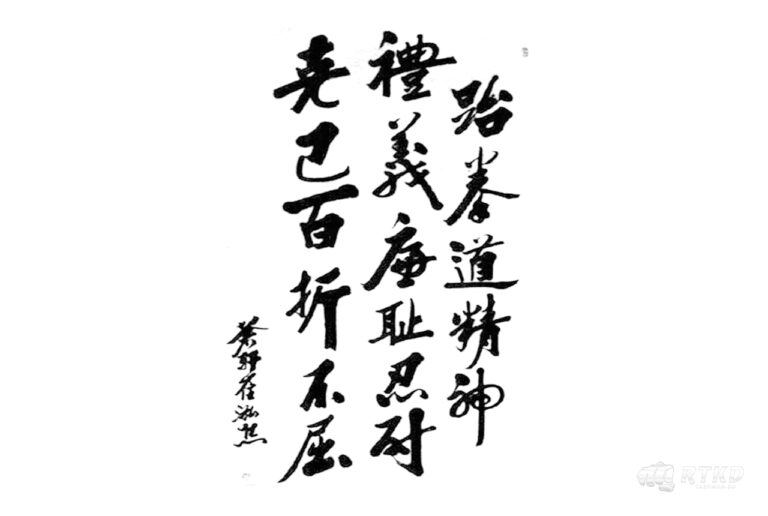 跆拳道精神
禮義廉耻忍耐
克己百折不屈
蒼軒崔泓熙
RTKD